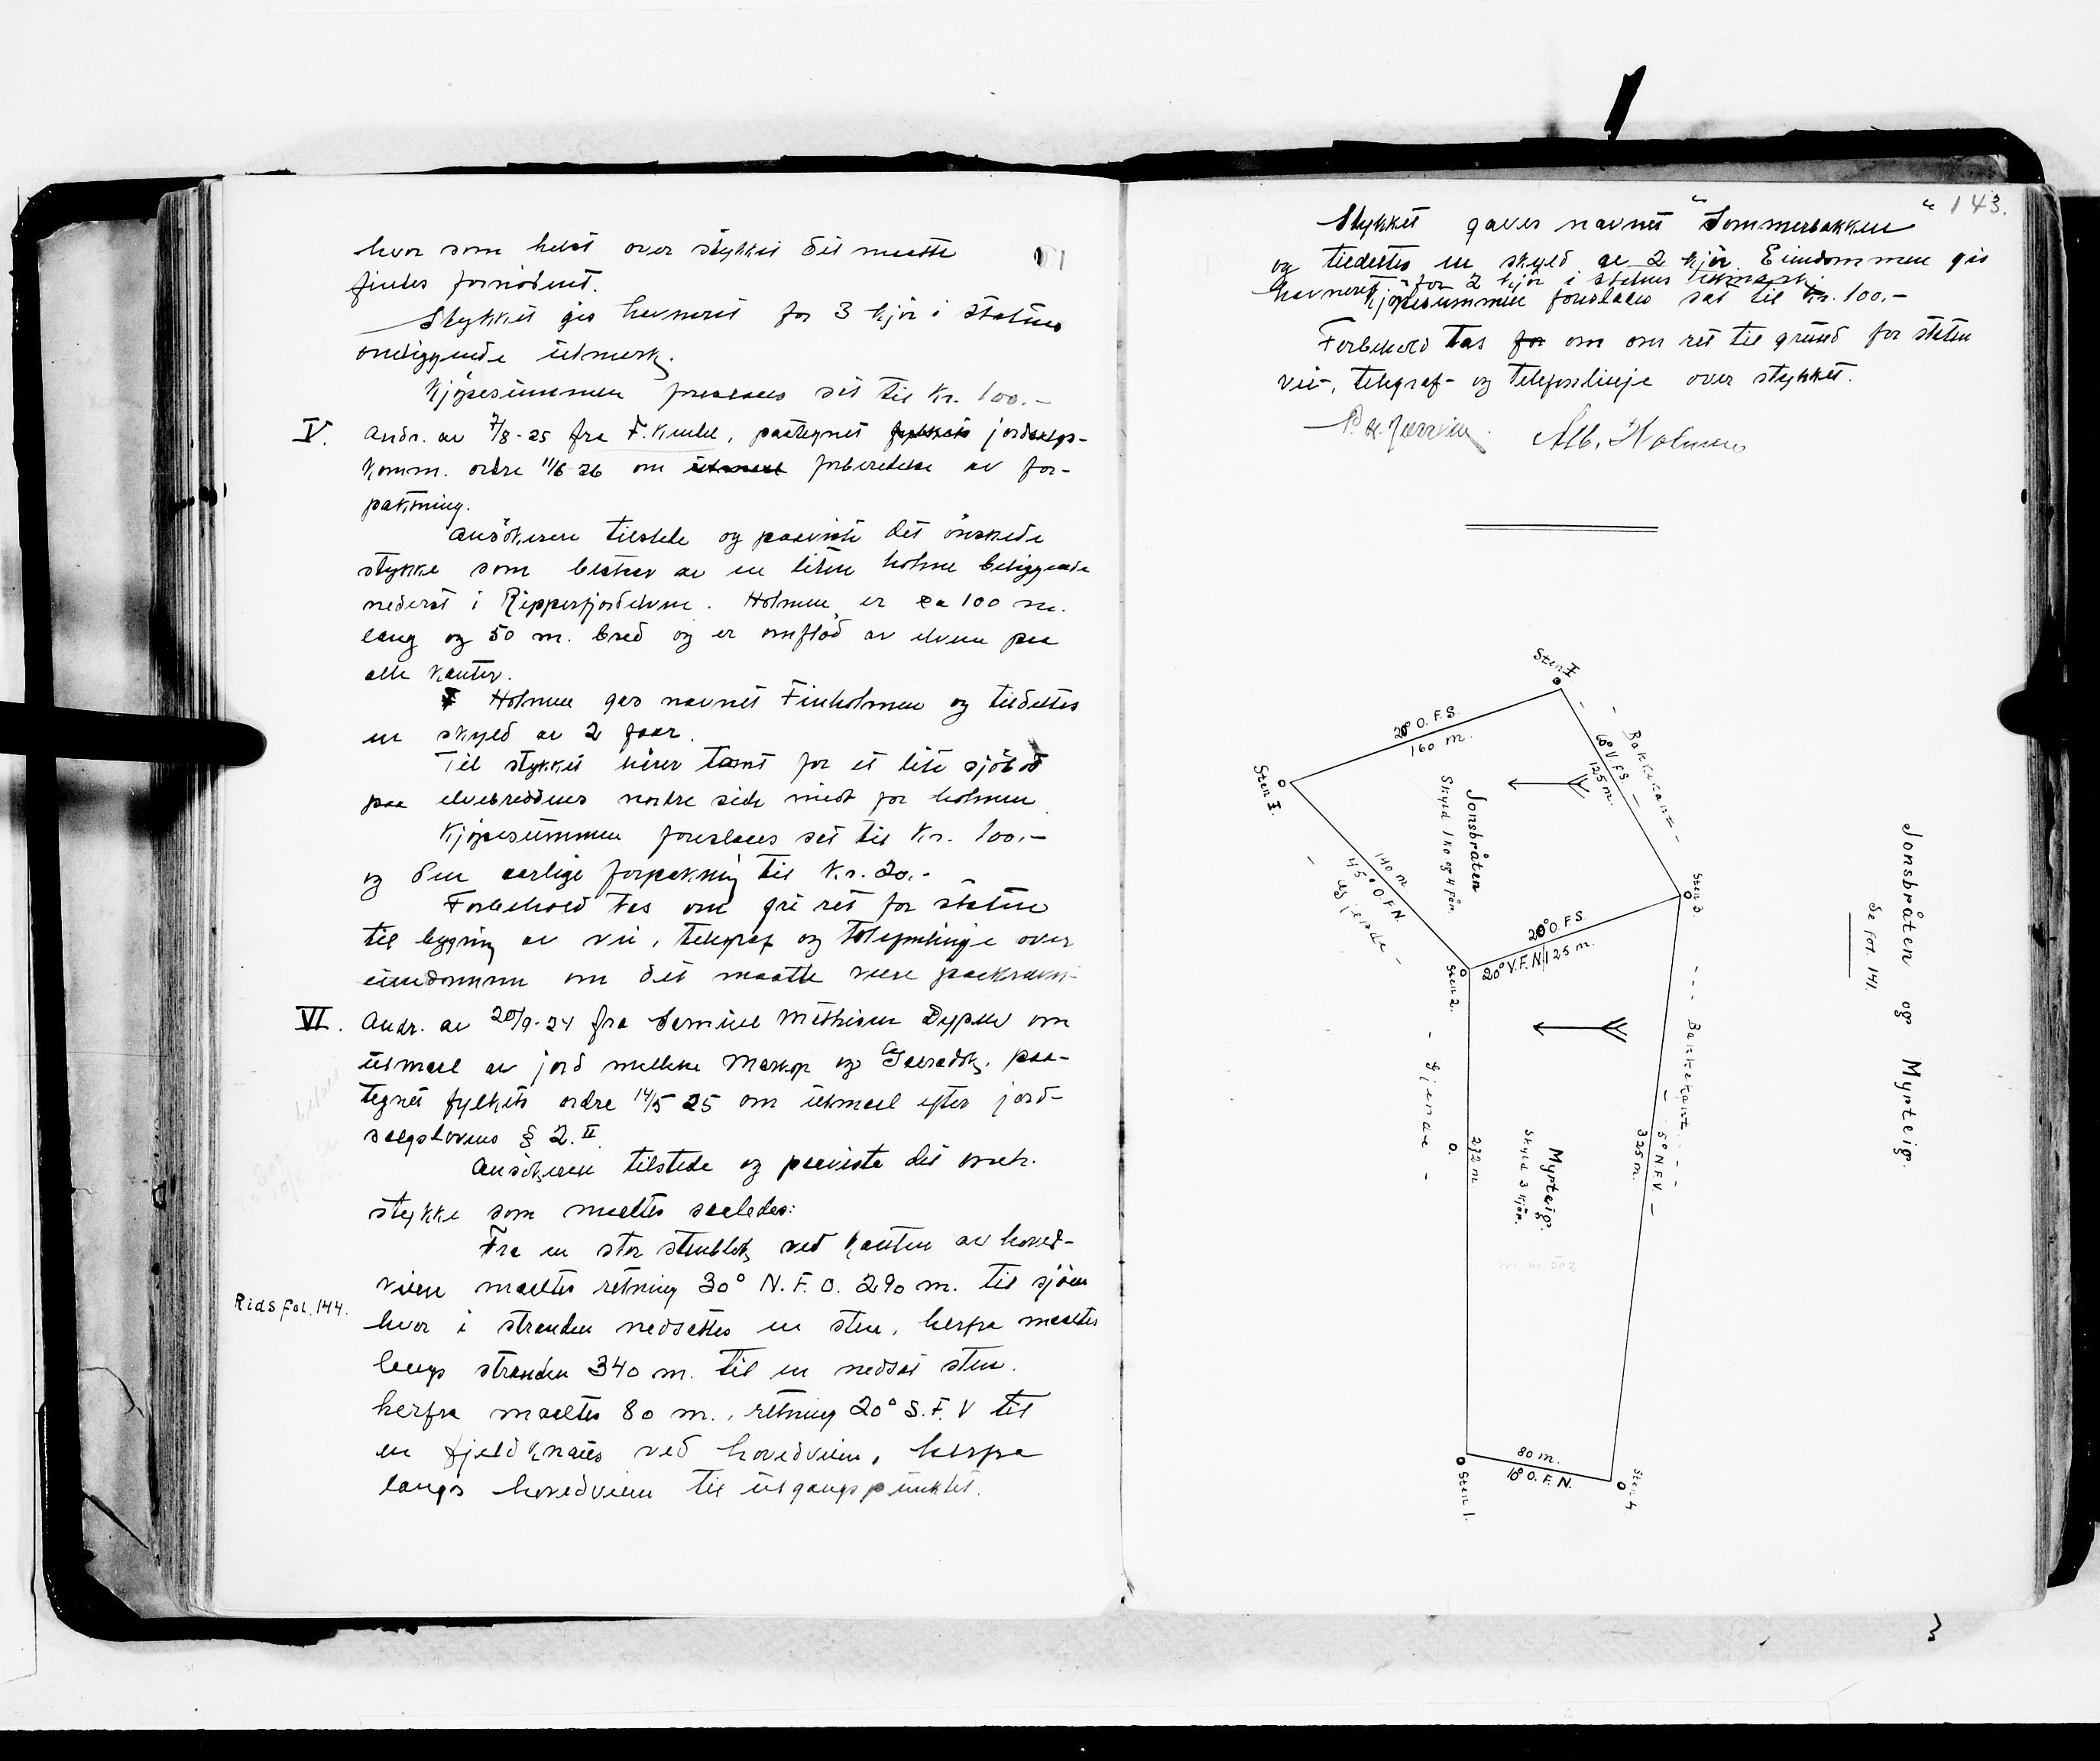 hvor som helst over stykket det maatte
findes fornødent.
Stykket gis havneret for 3 kjør i statens
omliggende utmark.
Kjøpesummen foreslaaes sat til Kr. 100.-
V. Andr. av 7/8-25 fra F. paategnet fylkets jordsalgs-
komm. ordre 11/6-26 om utmaal forberedelse av for-
paktning.
Ansökeren tilstede og paaviste det önskede
stykke som bestaar av en liten holme beliggende
nederst i Ripperfjordelven. Holmen er ca 100 m.
lang og 50 m. bred og er omflöd av elven paa
alle kanter.
Holmen gas navnet Finholmen og tildeltes
en skyld av 2 faar.
Til stykket hörer tomt for et lite sjöbod
paa elvebreddens nordre side midt for holmen.
Kjøpesummen foreslaaes sat til Kr. 100.-
og den aarlige forpaktning til Kr. 20.-
Forbehold tas om fri ret for staten
til bygning av vei, telegraf og telefonlinje over
eiendommen om det maatte være paakrævet.
VI. Andr. av 20/9-24 fra Mathisen Dypelv om
utmaal av jord mellem Markop og paa-
tegnet fylkets ordre 14/5 25 om utmaal efter jord-
salgslovens § 2. II.
Ansökeren tilstede og paaviste det ønsk.
stykke som maaltes saaledes:
Fra en stor stenblok ved kanten av hoved-
veien maaltes retning 30° N. F. O. 290 m. til sjöen
Rids fol. 144.
hvor i stranden nedsattes en sten, herfra maaltes
langs stranden 340 m. til en nedsat sten.
herfra maaltes 80 m., retning 20° S. F. V til
en fjeldknaus ved hovedveien, herfra
langs hovedveien til utgangspunktet.
143.
Stykket gaves navnet "Sommerbakken"
og tildeltes en skyld av 2 kjör. Eiendommen gis
havneret for 2 kjör i statens utmark.
Kjøpesummen foreslaaes sat til Kr. 100.-
Forbehold tas for om om ret til grund for staten
vei-, telegraf- og telefonlinje over stykket.
Alb. Holmen
Sten I
20° O. F. S.
160 m.
Bakkekant
V. F. S.
125 m.
Sten
Jonsbråten
Skyld 1 ko og 4 får.
140 m
45° O. F. N.
gjerde
Sten 3.
20° O. F. S.
20° V. F. N. 125 m.
Sten 2.
Bakkekant
Gjerde
272 m
Myrteig.
Skyld 3 kjör.
5° N F V
325 m.
80 m.
10° O. F. N.
Sten 1.
Sten 4
Jonsbråten og Myrteig.
Se Fol. 141.